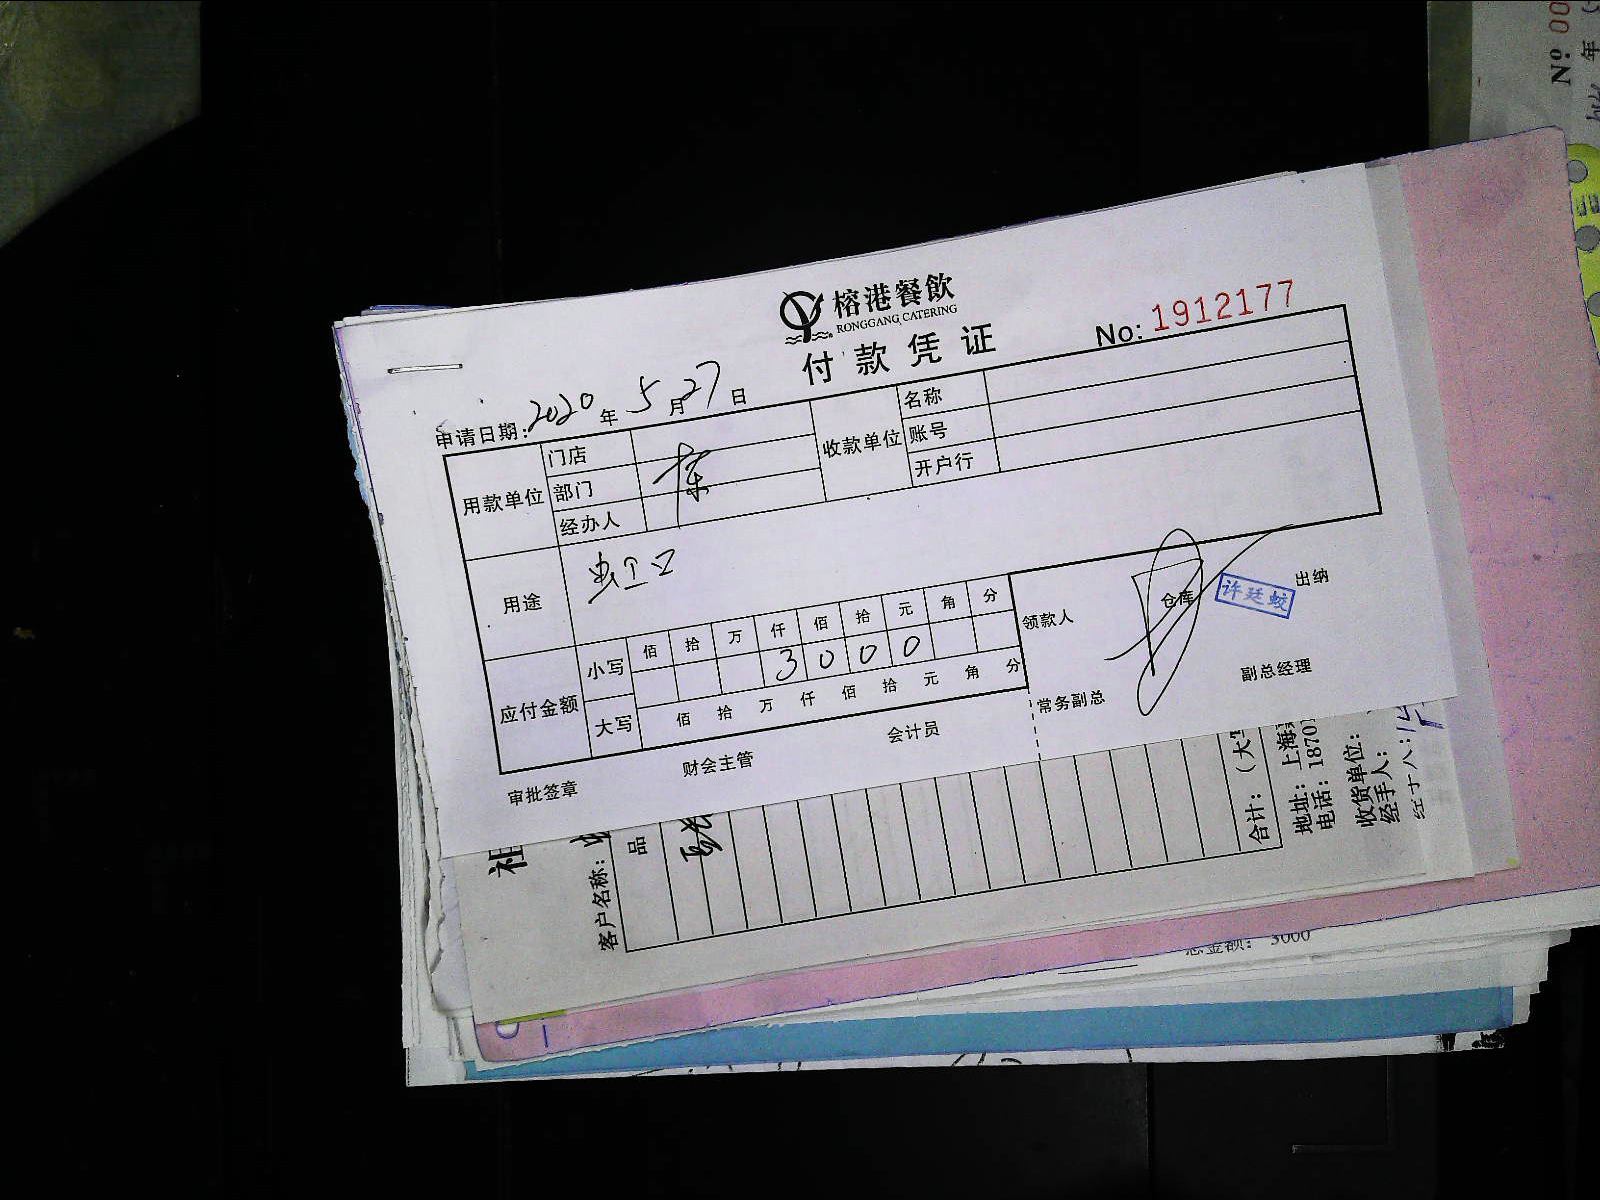 No: 00
年
榕港餐飲
RONGGANG CATERING
付款凭证
No: 1912177
申请日期: 2020 年 5 月 27 日
用款单位
门店
部门
经办人
收款单位
名称
账号
开户行
用途
虹口
应付金额
小写
佰 拾 万 仟 佰 拾 元 角 分
3 0 0 0
大写
佰 拾 万 仟 佰 拾 元 角 分
领款人
仓库
许廷蛟
出纳
常务副总
副总经理
审批签章
财会主管
会计员
祖
客户名称:
品
合计:(大写
地址: 上海
电话: 1870
收货单位:
经手人:
总金额: 3000